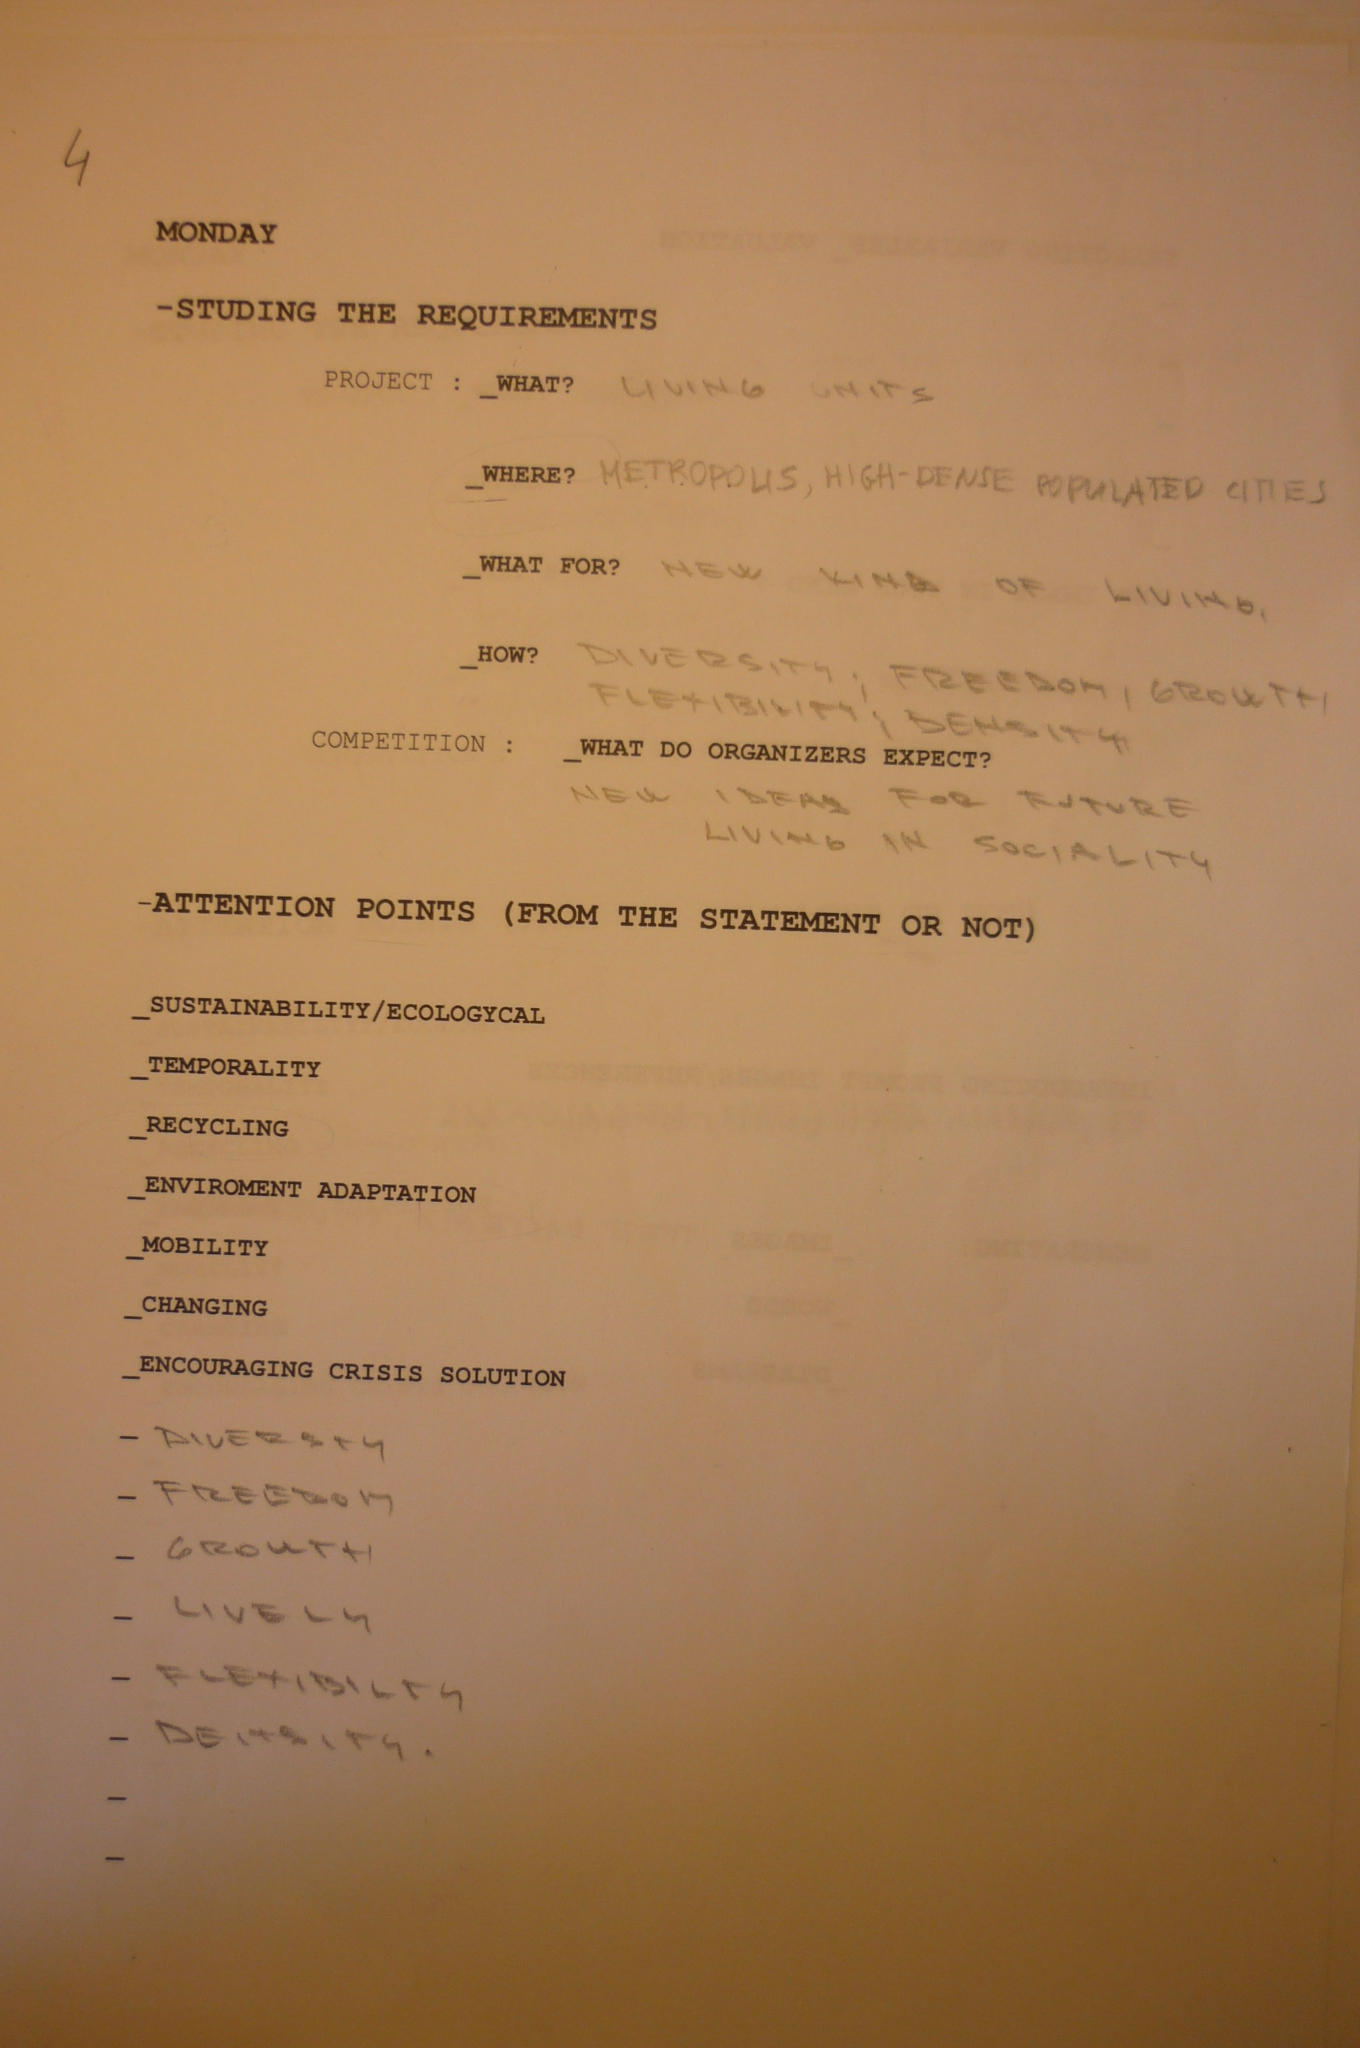 4
MONDAY
-STUDING THE REQUIREMENTS
PROJECT : _WHAT? LIVING UNITS
_WHERE? METROPOLIS, HIGH-DENSE POPULATED CITIES
_WHAT FOR? NEW KIND OF LIVING.
_HOW? DIVERSITY, FREEDOM, GROWTH
FLEXIBILITY, DENSITY
COMPETITION : _WHAT DO ORGANIZERS EXPECT?
NEW IDEAS FOR FUTURE
LIVING IN SOCIALITY
-ATTENTION POINTS (FROM THE STATEMENT OR NOT)
_SUSTAINABILITY/ECOLOGYCAL
_TEMPORALITY
_RECYCLING
_ENVIROMENT ADAPTATION
_MOBILITY
_CHANGING
_ENCOURAGING CRISIS SOLUTION
_ DIVERSTY
_ FREEDOM
_ GROWTH
_ LIVELY
_ FLEXIBILTY
_ DENSITY.
_
_